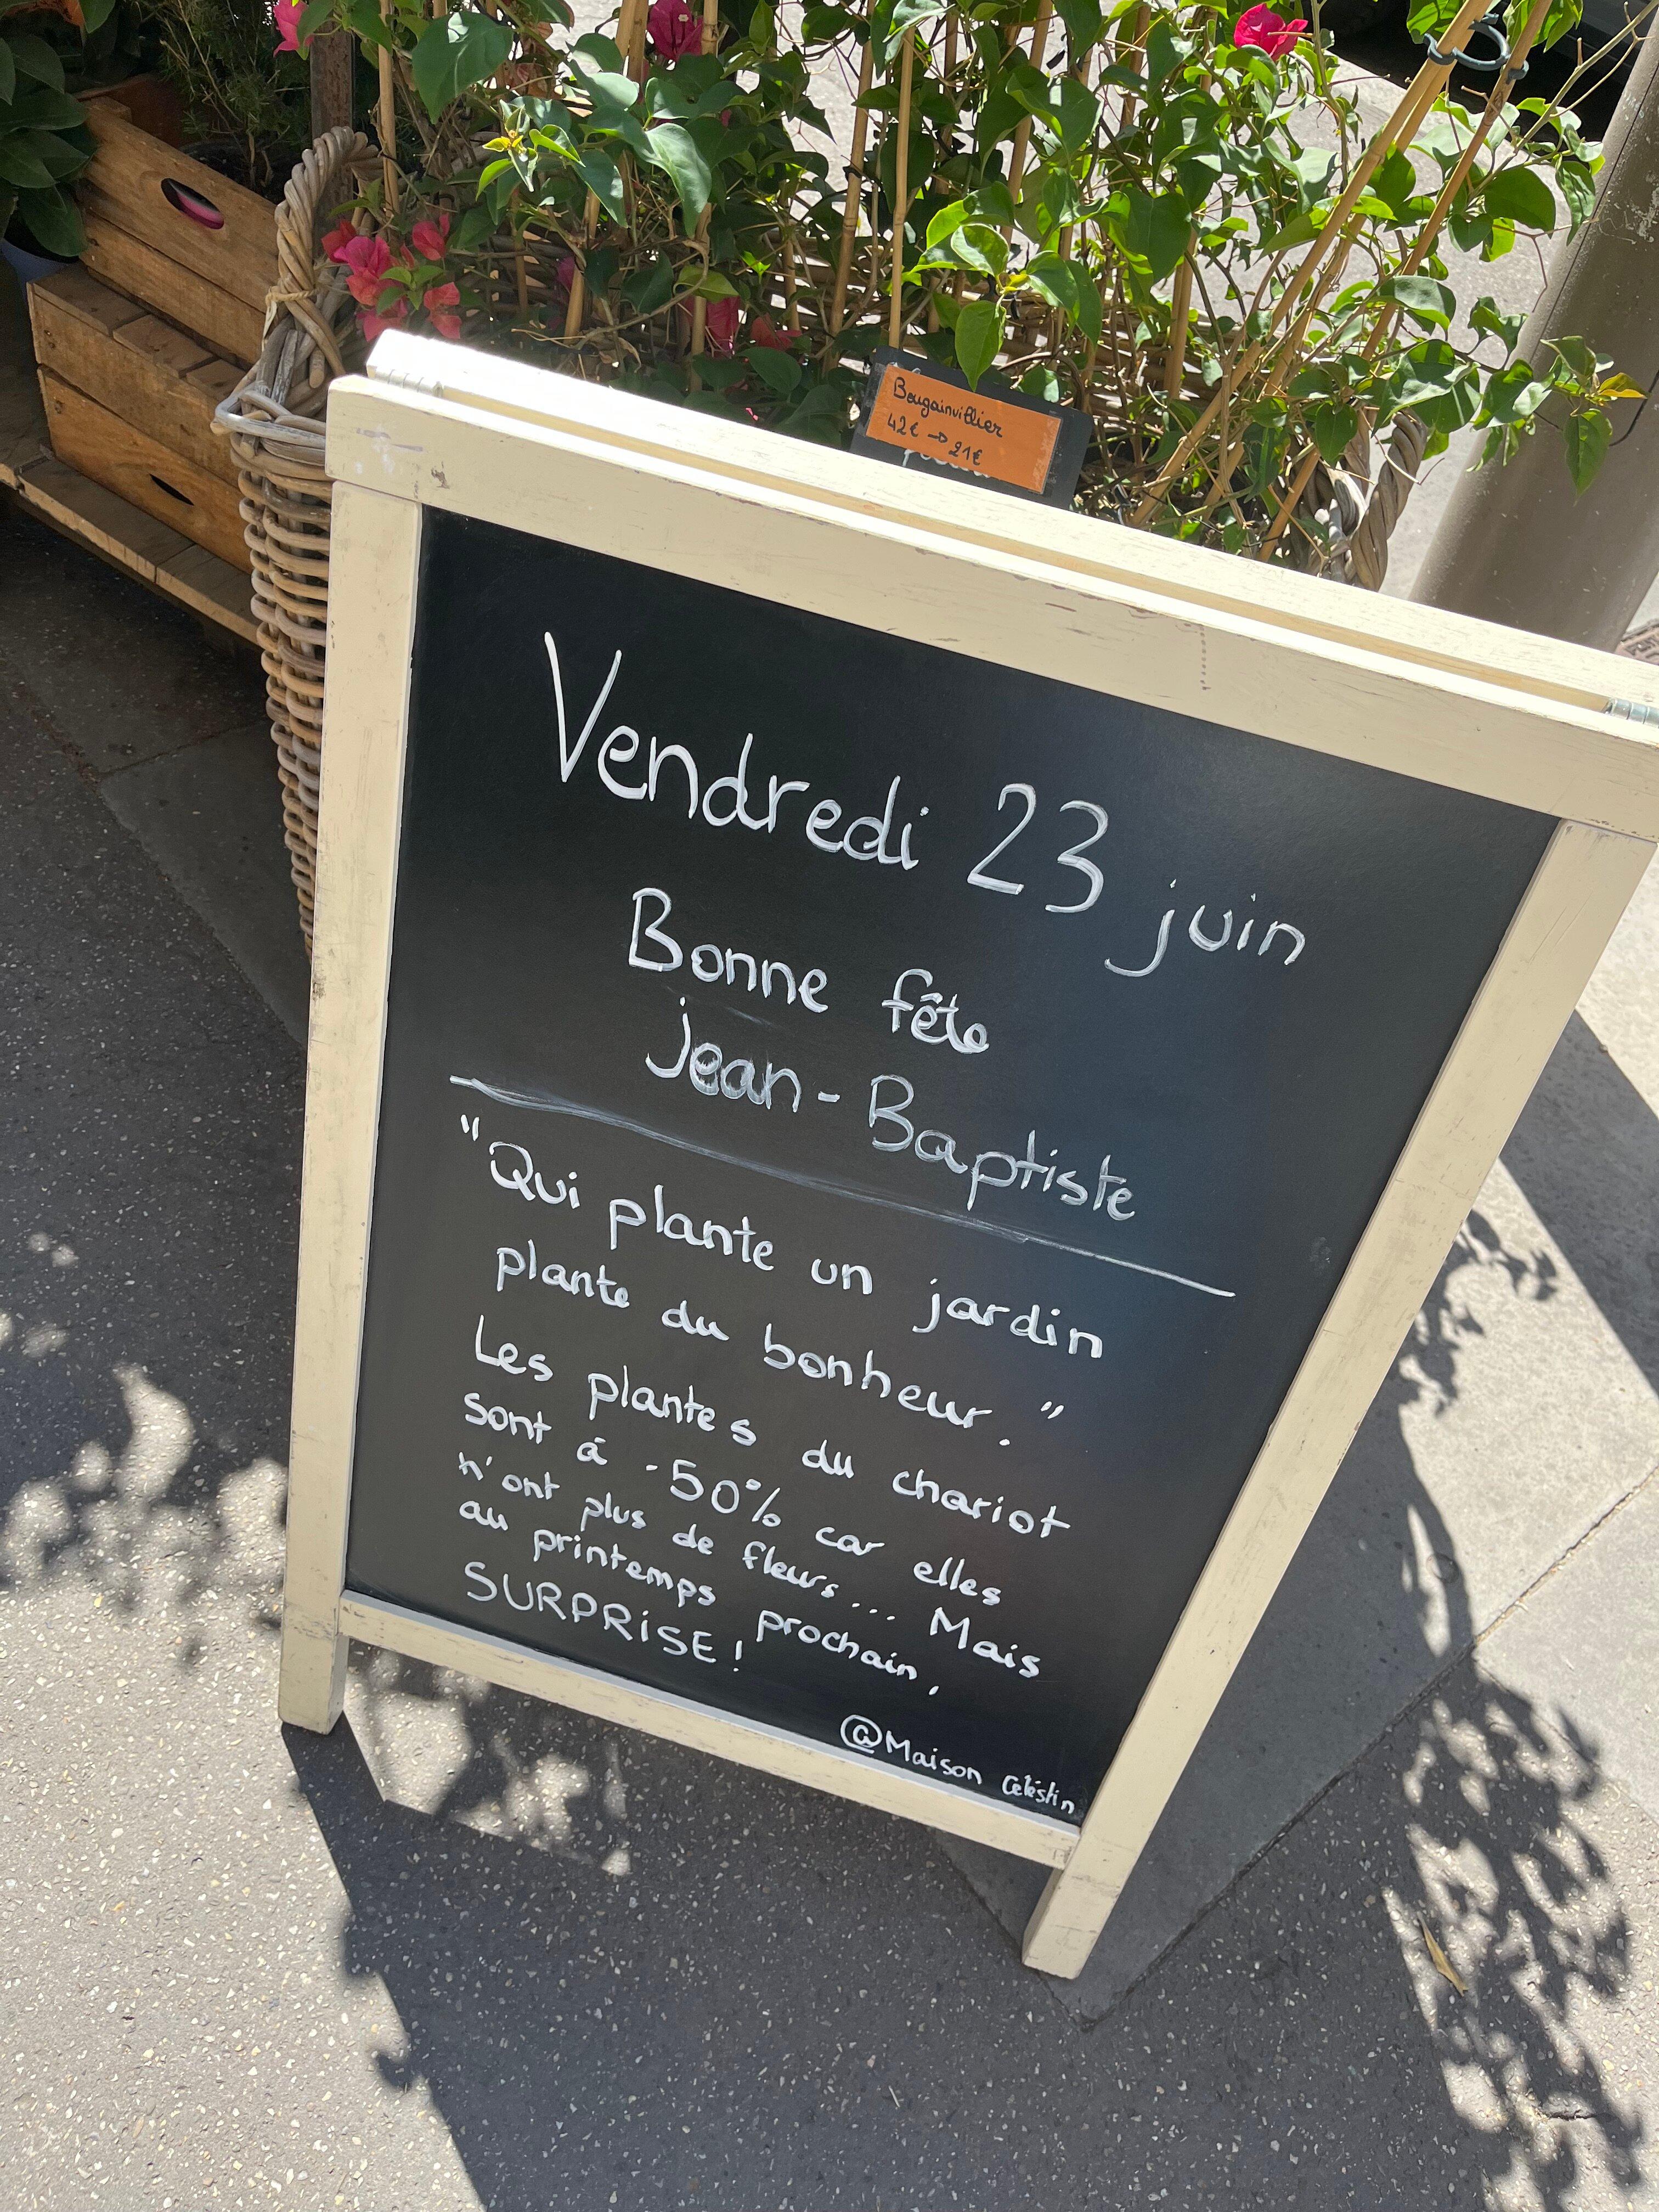 Bougainvillier
42€ → 21€
Vendredi 23 juin
Bonne fête
Jean-Baptiste
"Qui plante un jardin
plante du bonheur."
Les plantes du chariot
sont à -50% car elles
n'ont plus de fleurs... Mais
au printemps prochain,
SURPRiSE !
@Maison Célestin